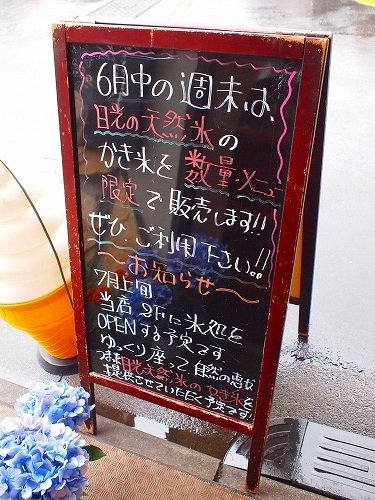 6月中の週末は、
日光の天然氷の
かき氷を数量・メニュー
限定で販売します!!
ぜひ、ご利用下さい!!
〜お知らせ〜
7月上旬
当店2Fに氷処を
OPENする予定です
ゆっくり座って自然の恵み
日光天然氷のかき氷を
提供させていただく予定です